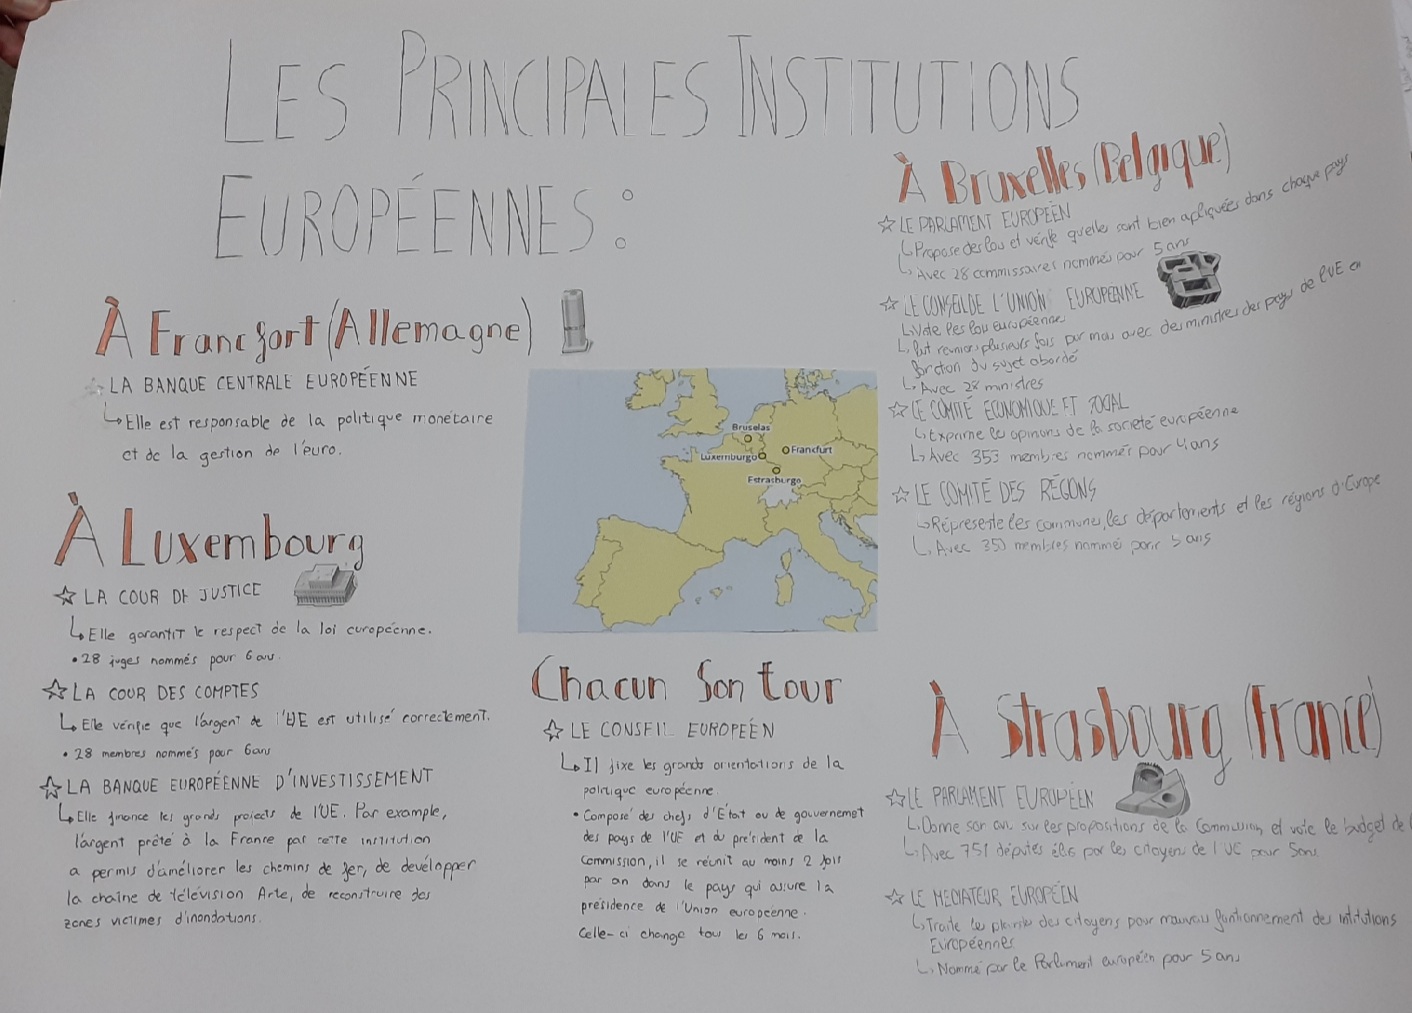 LES PRINCIPALES INSTITUTIONS
EUROPÉENNES :
À Francfort (Allemagne)
LA BANQUE CENTRALE EUROPÉENNE
Elle est responsable de la politique monétaire
et de la gestion de l'euro.
À Luxembourg
LA COUR DE JUSTICE
Elle garantit le respect de la loi européenne.
• 28 juges nommés pour 6 ans.
LA COUR DES COMPTES
Elle vérifie que l'argent de l'UE est utilisé correctement.
• 28 membres nommés pour 6 ans
LA BANQUE EUROPÉENNE D'INVESTISSEMENT
Elle finance les grands projects de l'UE. Par example,
l'argent prêté à la France par cette institution
a permis d'améliorer les chemins de fer, de développer
la chaîne de télévision Arte, de reconstruire des
zones victimes d'inondations.
Bruselas
Luxemburgo
Frankfurt
Estrasburgo
Chacun son tour
LE CONSEIL EUROPÉEN
Il fixe les grands orientations de la
politique européenne.
• Composé des chefs d'État ou de gouvernemet
des pays de l'UE et du président de la
Commission, il se réunit au moins 2 foir
par an dans le pays qui assure la
présidence de l'Union européenne.
Celle-ci change tous les 6 mois.
À Bruxelles (Belgique)
LE PARLAMENT EUROPÉEN
Propose des lou et vérifie quelles sont bien apliquées dans chaque pays
Avec 28 commissaires nommés pour 5 ans
LE CONSEIL DE L'UNION EUROPÉENNE
Vote les lou européenne
plusieurs fois par mois avec des ministres des pays de l'UE en
fonction du sujet abordé
Avec 28 ministres
LE COMITÉ ÉCONOMIQUE ET SOCIAL
Exprime les opinions de la société européenne
Avec 353 membres nommés pour 4 ans
LE COMITÉ DES RÉGIONS
Représente les communes, les départements et les régions d'Europe
Avec 350 membres nommé pour 5 ans
À Strasbourg (France)
LE PARLAMENT EUROPÉEN
Donne son avi sur les propositions de la Commission et vote le budget de l
Avec 751 députés élis par les citoyens de l'UE pour 5 ans.
LE MÉDIATEUR EUROPÉEN
Traite les plainte des citoyens pour mauvau funtionnement des intitutions
Européennes
Nommé par le Parlament européen pour 5 ans